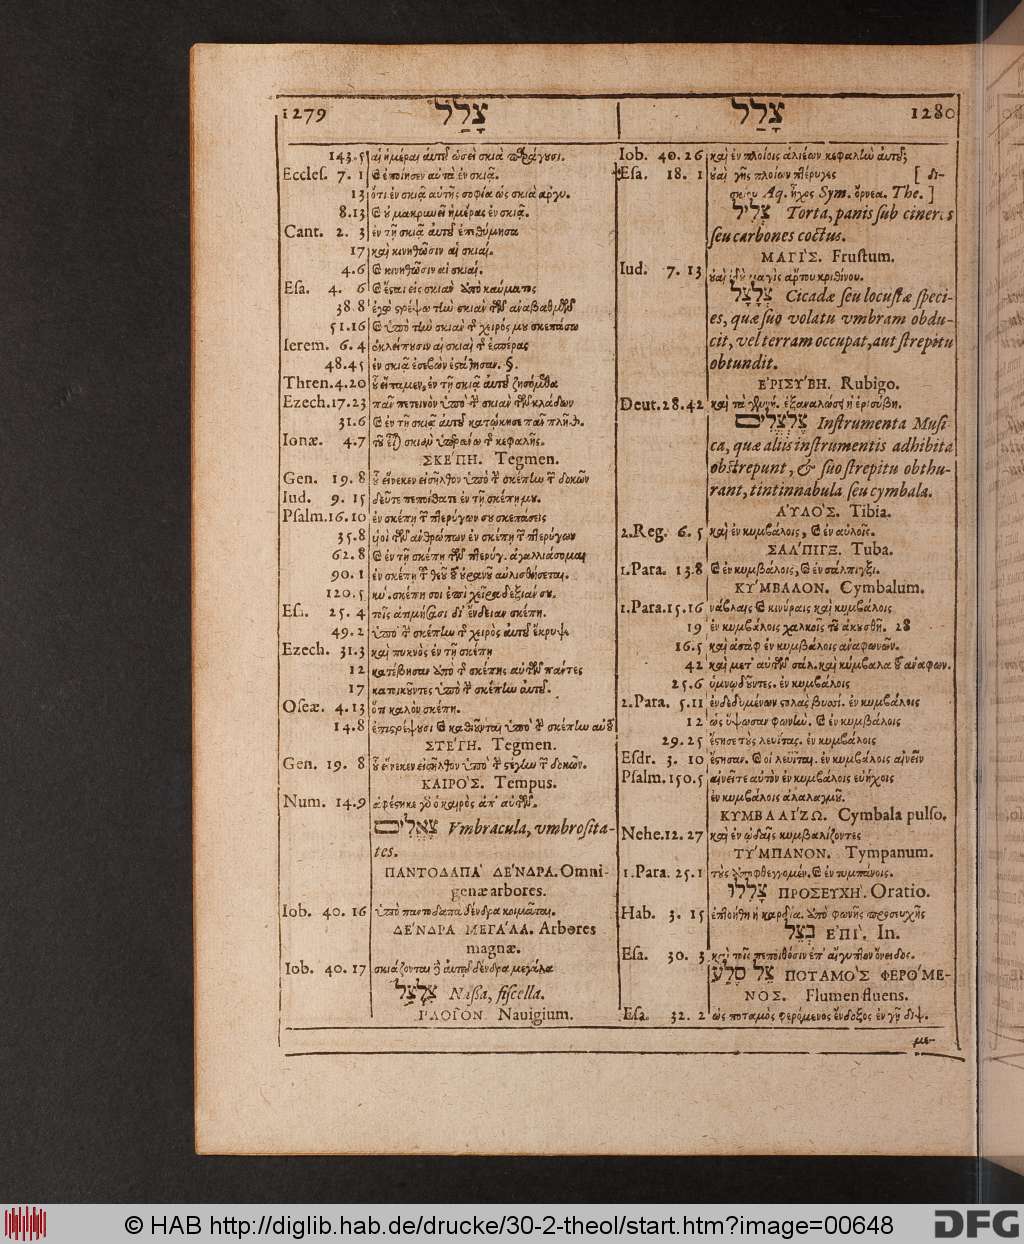 1279 צָלַל
143.5 αἱ ἡμέραι αὐτοῦ ὡσεὶ σκιὰ παράγουσι.
Eccles. 7. 1 καὶ ἐποίησεν αὐτὰ ἐν σκιᾷ.
13 ὅτι ἐν σκιᾷ αὐτῆς σοφία ὡς σκιὰ ἀργυ.
8.13 καὶ οὐ μακρυνεῖ ἡμέρας ἐν σκιᾷ.
Cant. 2. 3 ἐν τῇ σκιᾷ αὐτοῦ ἐπεθύμησα
17 καὶ κινηθῶσιν αἱ σκιαί.
4.6 καὶ κινηθῶσιν αἱ σκιαί.
Esa. 4. 6 καὶ ἔσται εἰς σκιὰν ἀπὸ καύματος
38 8 ἐγὼ στρέψω τὴν σκιὰν τῶν ἀναβαθμῶν
51.16 καὶ ὑπὸ τὴν σκιὰν τῆς χειρός μου σκεπάσω
Ierem. 6. 4 ἐκλείπουσιν αἱ σκιαὶ τῆς ἑσπέρας
48.45 ἐν σκιᾷ ἐσεβὼν ἐστάθησαν. §.
Thren. 4.20 οὗ εἴπαμεν, ἐν τῇ σκιᾷ αὐτοῦ ζησόμεθα
Ezech. 17.23 πᾶν πετεινὸν ὑπὸ τὴν σκιὰν τῶν κλάδων
31.6 καὶ ἐν τῇ σκιᾷ αὐτοῦ κατῴκησε πᾶν πλῆθ.
Ionæ. 4.7 τοῦ εἶναι σκιὰν ὑπεράνω τῆς κεφαλῆς.
ΣΚΕΠΗ. Tegmen.
Gen. 19. 8 οὗ εἵνεκεν εἰσῆλθον ὑπὸ τὴν σκέπην τῶν δοκῶν
Iud. 9. 15 δεῦτε πεποίθατε ἐν τῇ σκέπῃ μου.
Psalm. 16.10 ἐν σκέπῃ τῶν πτερύγων σου σκεπάσεις
35.8 υἱοὶ τῶν ἀνθρώπων ἐν σκέπῃ τῶν πτερύγων
62.8 καὶ ἐν τῇ σκέπῃ τῶν πτερύγ. ἀγαλλιάσομαι
90. 1 ἐν σκέπῃ τοῦ θεοῦ τοῦ οὐρανοῦ αὐλισθήσεται.
120.5 κυ. σκέπη σοι ἐπὶ χεῖρα δεξιάν σου.
Es. 25. 4 τοῖς ἀτιμήσασι δι' ἔνδειαν σκέπη.
49.2 ὑπὸ τὴν σκέπην τῆς χειρὸς αὐτοῦ ἔκρυψε
Ezech. 31.3 καὶ πυκνὸς ἐν τῇ σκέπῃ
12 κατέβησαν ἀπὸ τῆς σκέπης αὐτῶν πάντες
17 κατοικοῦντες ὑπὸ τὴν σκέπην αὐτοῦ.
Oseæ. 4.13 ὅτι καλὸν σκέπη.
14.8 ἐπιστρέψουσι καὶ καθιοῦνται ὑπὸ τὴν σκέπην αὐτοῦ
ΣΤΕΓΗ. Tegmen.
Gen. 19. 8 οὗ εἵνεκεν εἰσῆλθον ὑπὸ τὴν στέγην τῶν δοκῶν.
ΚΑΙΡΟΣ. Tempus.
Num. 14.9 ἀφέστηκε γὰρ ὁ καιρὸς ἀπ' αὐτῶν.
צֶאֱלִים Vmbracula, vmbrosita-
tes.
ΠΑΝΤΟΔΑΠΑ ΔΕΝΔΡΑ. Omni-
genæ arbores.
Iob. 40. 16 ὑπὸ παντοδαπὰ δένδρα κοιμᾶται.
ΔΕΝΔΡΑ ΜΕΓΑΛΑ. Arbores
magnæ.
Iob. 40. 17 σκιάζονται ἐν αὐτῷ δένδρα μεγάλα
צֶלְצַל Nassa, fiscella.
ΠΛΟΙΟΝ Nauigium.
צָלַל 1280
Iob. 40. 26 καὶ ἐν πλοίοις ἁλιέων κεφαλὴν αὐτοῦ;
Esa. 18. 1 οὐαὶ γῆς πλοίων πτέρυγες [ δι-
Aq. ἦχος Sym. ὄρνεα. The. ]
צְלִיל Torta, panis sub cineres
seu carbones coctus.
ΜΑΓΙΣ. Frustum.
Iud. 7. 13 καὶ ἰδοὺ μαγὶς ἄρτου κριθίνου.
צְלָצָל Cicadæ seu locustæ speci-
es, quæ suo volatu vmbram obdu-
cit, vel terram occupat, aut strepitu
obtundit.
ΕΡΙΣΥΒΗ. Rubigo.
Deut. 28.42 καὶ τὰ γεννή. ἐξαναλώσει ἡ ἐρισύβη.
צֶלְצְלִים Instrumenta Musi-
ca, quæ aliis instrumentis adhibita
obstrepunt, & suo strepitu obthu-
rant, tintinnabula seu cymbala.
ΑΥΛΟΣ. Tibia.
2.Reg. 6. 5 καὶ ἐν κυμβάλοις, καὶ ἐν αὐλοῖς.
ΣΑΛΠΙΓΞ. Tuba.
1.Para. 13.8 καὶ ἐν κυμβάλοις, καὶ ἐν σάλπιγξι.
ΚΥΜΒΑΛΟΝ. Cymbalum.
1.Para. 15.16 νάβλαις καὶ κινύραις καὶ κυμβάλοις
19 ἐν κυμβάλοις χαλκοῖς τοῦ ἀκουσθῆ. 28
16.5 καὶ ἀσὰφ ἐν κυμβάλοις ἀναφωνῶν.
42 καὶ μετ' αὐτῶν σάλ. καὶ κύμβαλα τοῦ ἀναφων.
25.6 ὑμνῳδοῦντες. ἐν κυμβάλοις
2.Para. 5.11 ἐνδεδυμένων στολὰς βυσσί. ἐν κυμβάλοις
12 ὡς ὕψωσαν φωνὴν. καὶ ἐν κυμβάλοις
29. 25 ἔστησε τοὺς λευίτας. ἐν κυμβάλοις
Esdr. 3. 10 ἔστησαν. καὶ οἱ λευῖται. ἐν κυμβάλοις αἰνεῖν
Psalm. 150.5 αἰνεῖτε αὐτὸν ἐν κυμβάλοις εὐήχοις
ἐν κυμβάλοις ἀλαλαγμοῦ.
ΚΥΜΒΑΛΙΖΩ. Cymbala pulso.
Nehe. 12. 27 καὶ ἐν ᾠδαῖς κυμβαλίζοντες
ΤΥΜΠΑΝΟΝ. Tympanum.
1.Para. 25.1 τοὺς ἀποφθεγγομέν. καὶ ἐν τυμπάνοις.
צָלֲלוּ ΠΡΟΣΕΥΧΗ. Oratio.
Hab. 3. 15 ἐπτοήθη ἡ καρδία. ἀπὸ φωνῆς προσευχῆς
בְּצֵל ΕΠΙ. In.
Esa. 30. 3 καὶ τοῖς πεποιθόσιν ἐπ' αἴγυπτον ὄνειδος.
צֵל סֶלַע ΠΟΤΑΜΟΣ ΦΕΡΟΜΕ-
ΝΟΣ. Flumen fluens.
Esa. 32. 2 ὡς ποταμὸς φερόμενος ἔνδοξος ἐν γῇ διψ.
με-
© HAB http://diglib.hab.de/drucke/30-2-theol/start.htm?image=00648
DFG